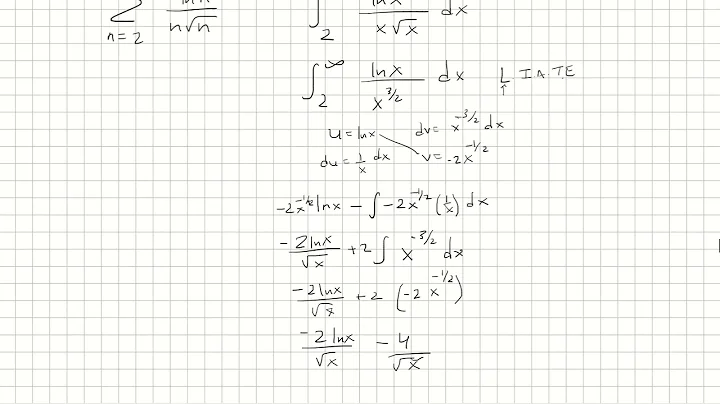 ∑ n=2 ln n / n√n ∫₂ ln x / x√x dx
∫₂^∞ ln x / x^(3/2) dx L.I.A.T.E
↑
u = ln x dv = x^(-3/2) dx
du = 1/x dx v = -2x^(-1/2)
-2x^(-1/2) ln x - ∫ -2x^(-1/2) (1/x) dx
-2 ln x / √x + 2 ∫ x^(-3/2) dx
-2 ln x / √x + 2 (-2 x^(-1/2))
-2 ln x / √x - 4 / √x